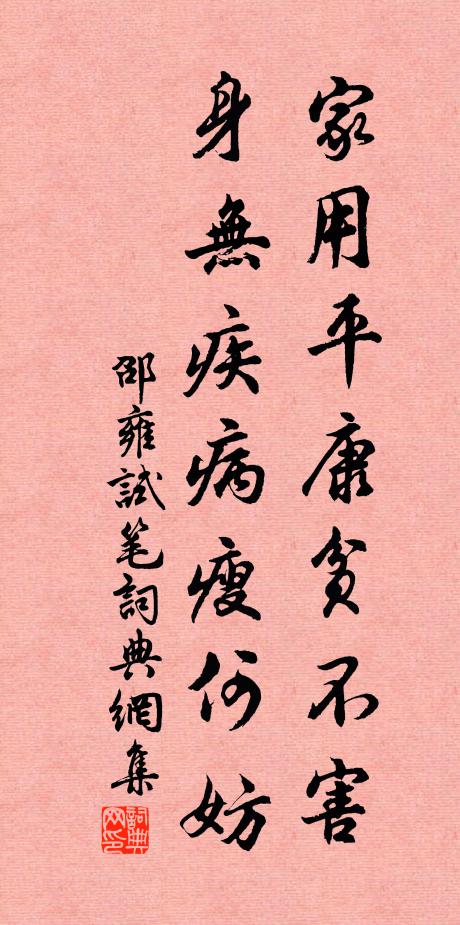 家用平康貧不害
身無疾病瘦何妨
邵雍試笔詞典網集
詞典网印